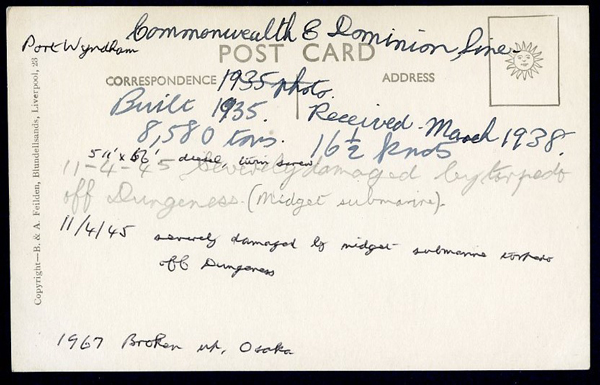 Commonwealth & Dominion Line-
Port Wyndham
POST CARD
CORRESPONDENCE
1935 photo.
ADDRESS
Built 1935.
Received March 1938.
8,580 tons. 16½ knots
diesel, twin screw
11-4-45 Severely damaged by torpedo
off Dungeness. (Midget submarine).
11/4/45 severely damaged by midget submarine torpedo
off Dungeness
1967 Broken up, Osaka
Copyright—B. & A. Feilden, Blundellsands, Liverpool, 23